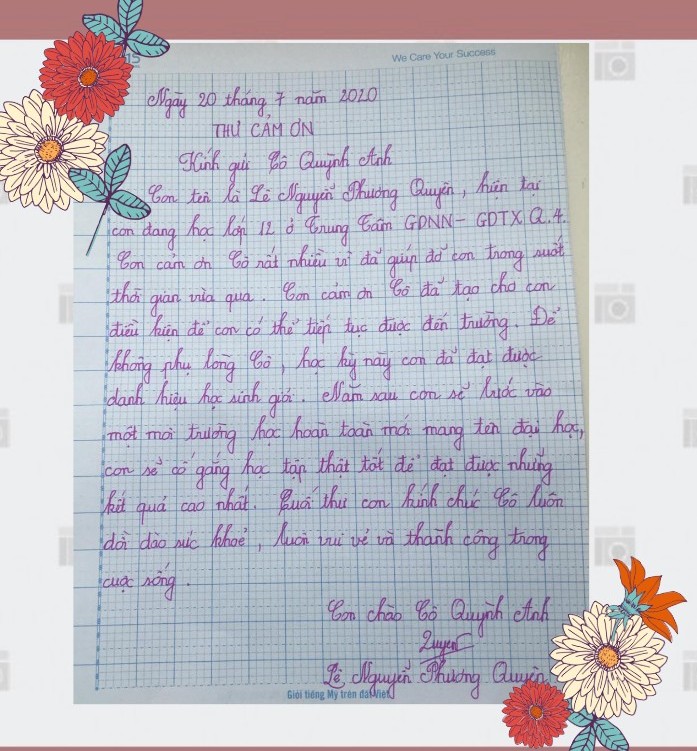 15
We Care Your Success
Ngày 20 tháng 7 năm 2020
THƯ CẢM ƠN
Kính gửi Cô Quỳnh Anh
Con tên là Lê Nguyễn Phương Quyên, hiện tại
con đang học lớp 12 ở Trung Tâm GDNN - GDTX Q.4.
Con cảm ơn Cô rất nhiều vì đã giúp đỡ con trong suốt
thời gian vừa qua. Con cảm ơn Cô đã tạo cho con
điều kiện để con có thể tiếp tục được đến trường. Để
không phụ lòng Cô, học kỳ này con đã đạt được
danh hiệu học sinh giỏi. Năm sau con sẽ bước vào
một môi trường học hoàn toàn mới mang tên đại học,
con sẽ cố gắng học tập thật tốt để đạt được những
kết quả cao nhất. Cuối thư con kính chúc Cô luôn
dồi dào sức khoẻ, luôn vui vẻ và thành công trong
cuộc sống.
Con chào Cô Quỳnh Anh
Quyên
Lê Nguyễn Phương Quyên
Giỏi tiếng Mỹ trên đất Việt